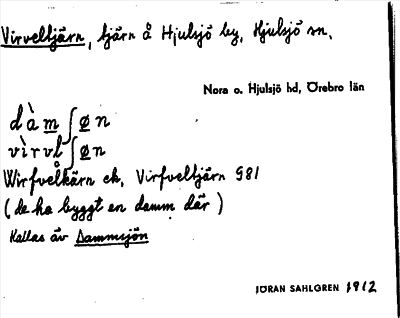 Virveltjärn, tjärn å Hjulsjö by, Hjulsjö sn.
Nora o. Hjulsjö hd, Örebro län
dàmʃøn
vìrvlʃøn
Wirfvelkärn ek, Virfveltjärn GSI
(de ha byggt en damm där)
Kallas äv Dammsjön
JÖRAN SAHLGREN 1912